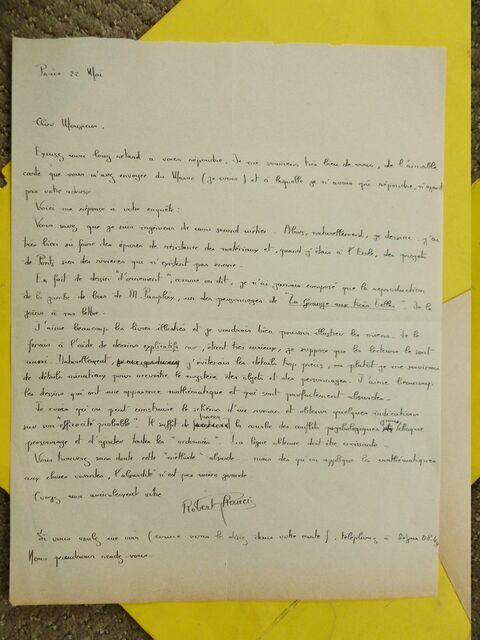 Paris 22 Mai
Cher Monsieur,
Excusez mon long retard à vous répondre. Je me souviens très bien de vous, de l'aimable
carte que vous m'avez envoyée du Maroc (je crois) et à laquelle je n'avais pu répondre, n'ayant
pas votre adresse
Voici ma réponse à votre enquête :
Vous savez, que je suis ingénieur de mon second métier. Alors, naturellement, je dessine : j'ai
très bien su faire des épures de résistance des matériaux et, quand j'étais à l'École, des projets
de Ponts sur des rivières qui n'existent pas encore.
En fait de dessin "d'ornement", comme on dit, je n'ai jamais composé que la reproduction
de la jambe de bois de M. Pamphey, un des personnages de "La Grange aux trois belles". Je la
joins à ma lettre.
J'aime beaucoup les livres illustrés et je voudrais bien pouvoir illustrer les miens. Je le
ferais à l'aide de dessins explicatifs car, étant très curieux, je suppose que les lecteurs le sont
aussi. Naturellement, j'éviterais les détails trop précis, ou plutôt je me servirais
de détails minutieux pour accroître le mystère des objets et des personnages. J'aime beaucoup
les dessins qui ont une apparence mathématique et qui sont parfaitement absurdes.
Je crois qu'on peut construire le schéma d'un roman et obtenir quelques indications
sur son efficacité probable. Il suffit de tracer la courbe des conflits psychologiques de chaque
personnage et d'ajouter toutes les "ordonnées". La ligne obtenue doit être croissante.
Vous trouverez sans doute cette "méthode" absurde... mais dès qu'on applique les mathématiques
aux choses vivantes, l'absurdité n'est pas moins grande
Croyez moi amicalement vôtre
Robert Francis
Si vous voulez me voir (comme vous le dites dans votre carte), téléphonez à
Nous prendrons rendez-vous.